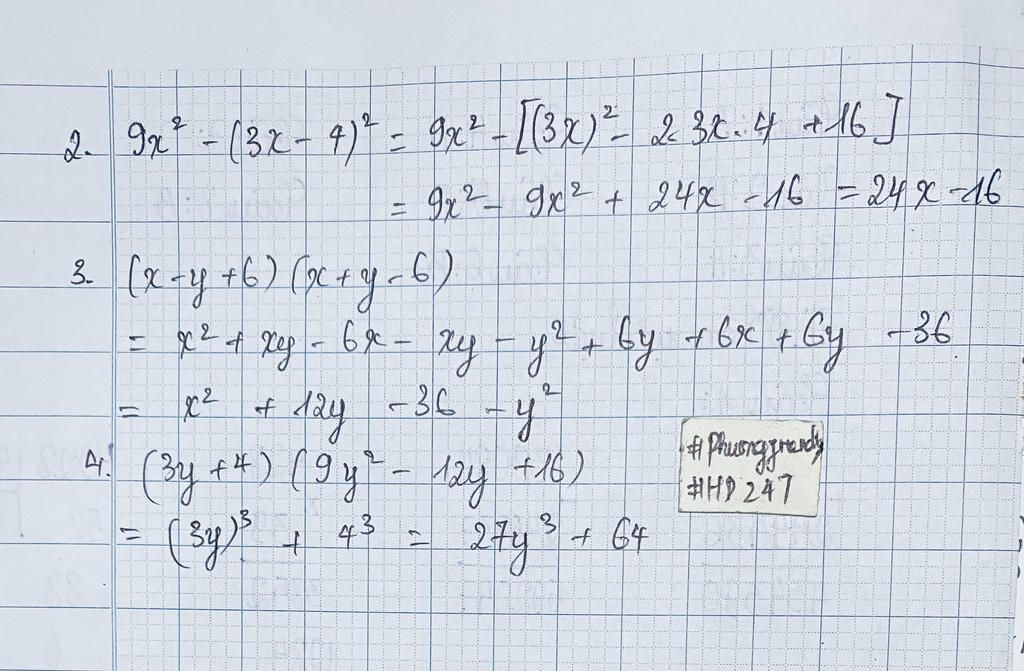 2. 9x² - (3x - 4)² = 9x² - [(3x)² - 2.3x.4 + 16]
= 9x² - 9x² + 24x - 16 = 24x - 16
3. (x - y + 6) (x + y - 6)
= x² + xy - 6x - xy - y² + 6y + 6x + 6y - 36
= x² + 12y - 36 - y²
4. (3y + 4) (9y² - 12y + 16)
= (3y)³ + 4³ = 27y³ + 64
#HD247